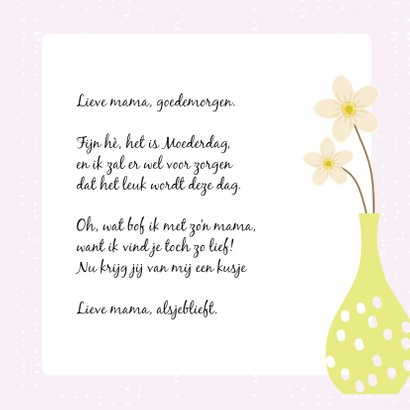 Lieve mama, goedemorgen.
Fijn hè, het is Moederdag,
en ik zal er wel voor zorgen
dat het leuk wordt deze dag.
Oh, wat bof ik met zo'n mama,
want ik vind je toch zo lief!
Nu krijg jij van mij een kusje
Lieve mama, alsjeblieft.